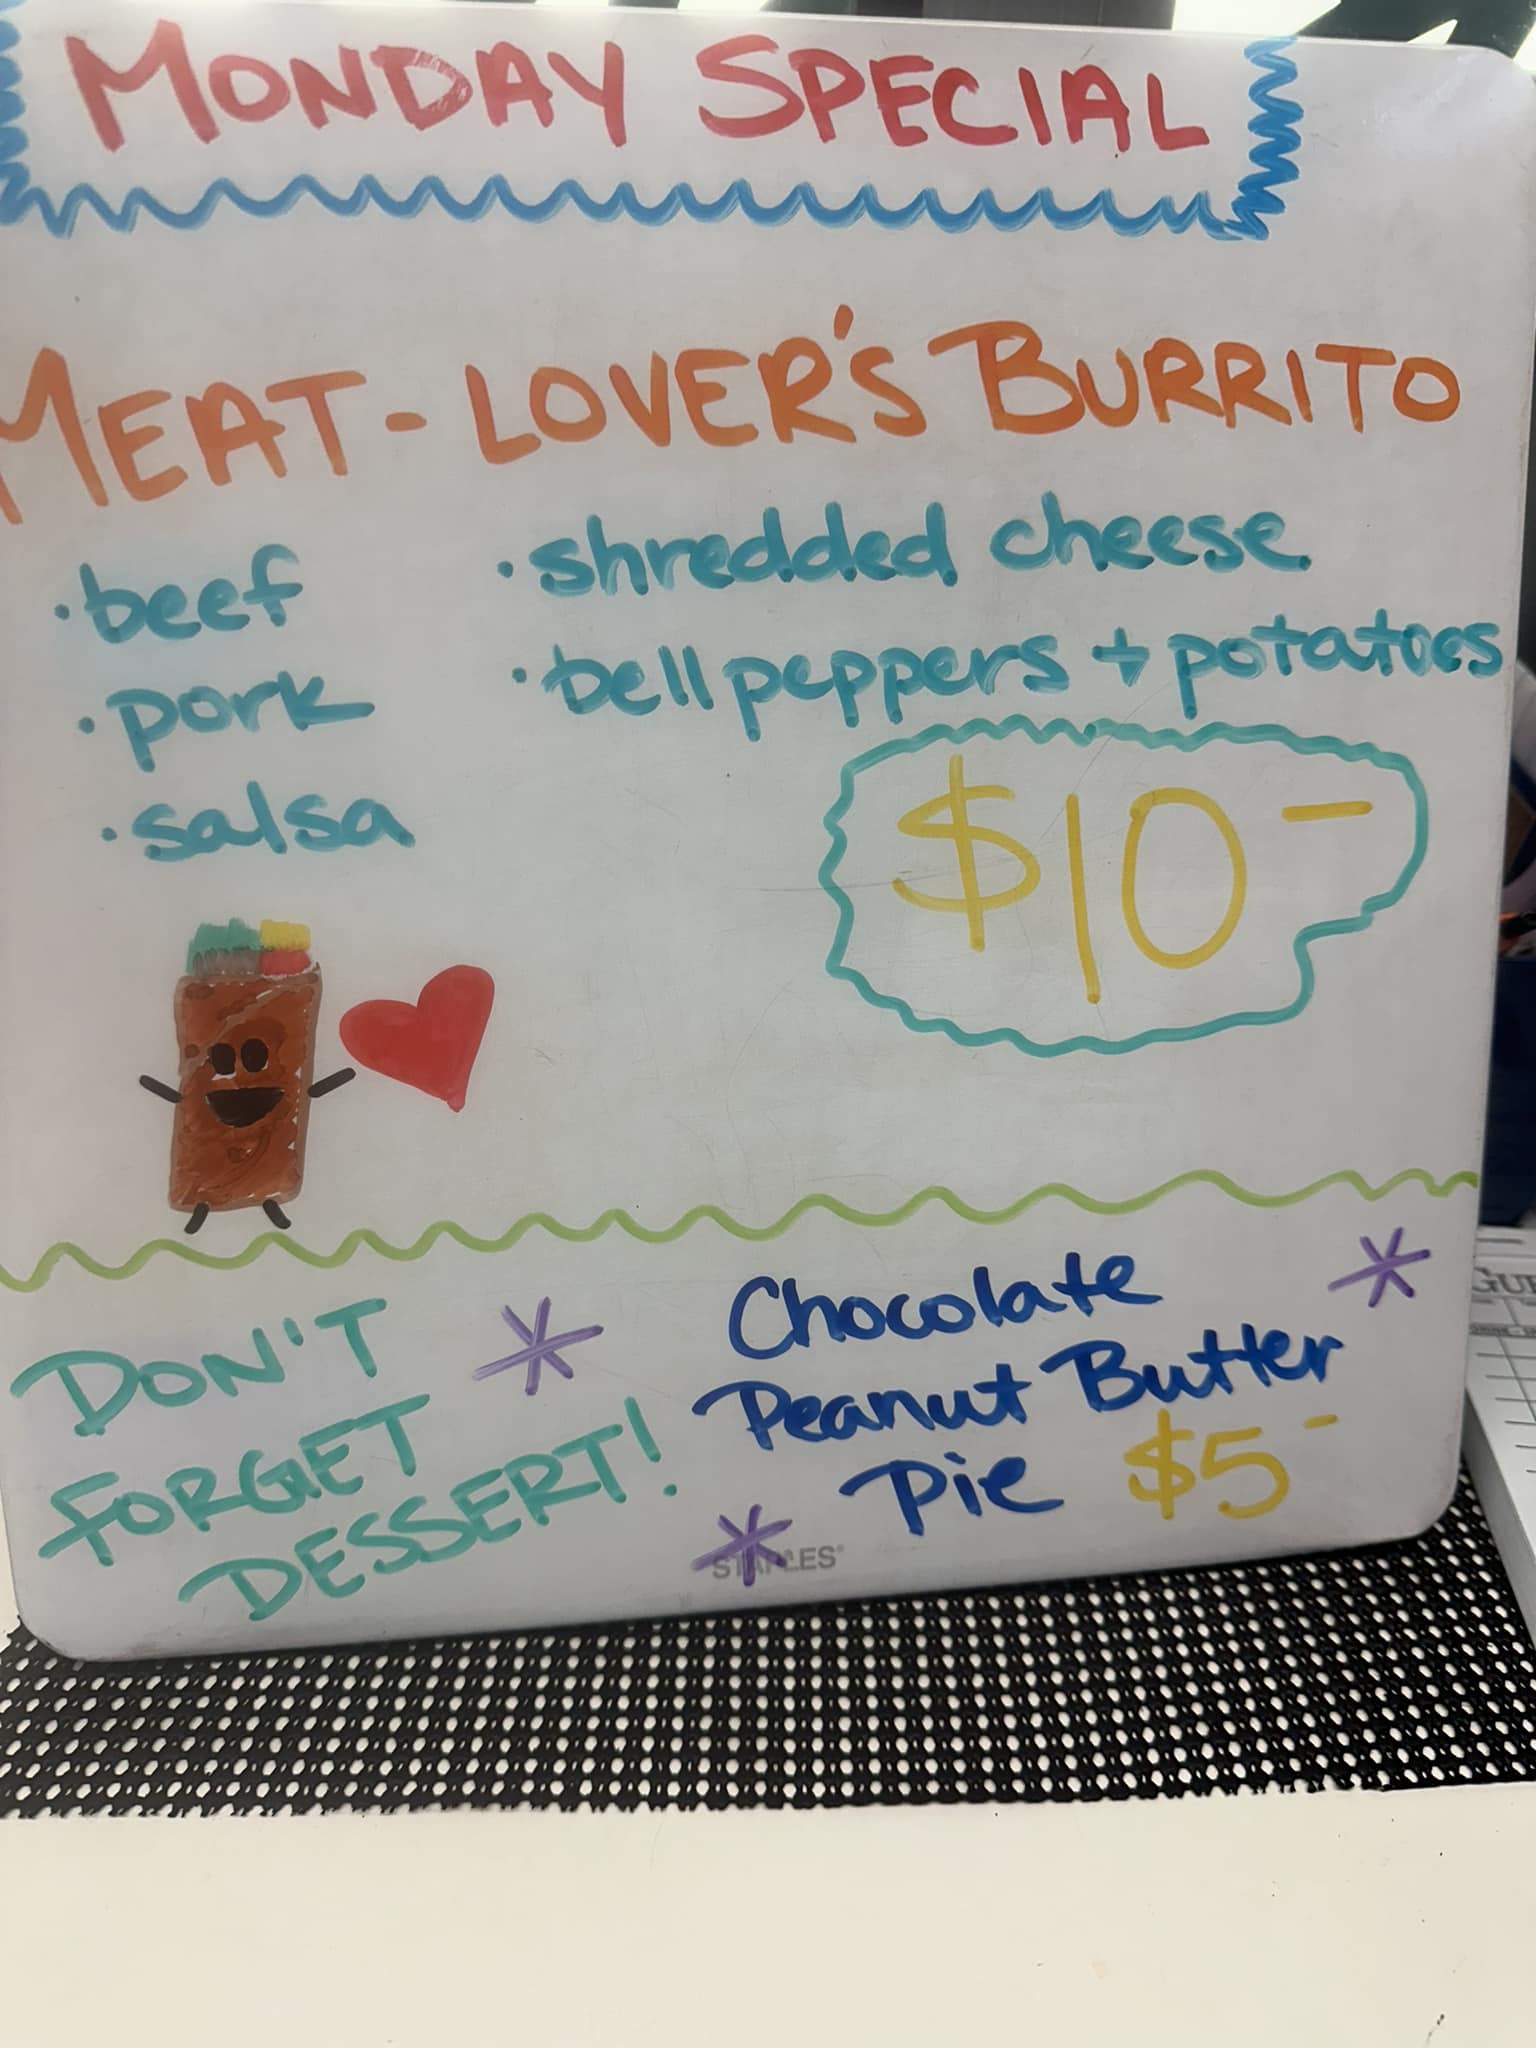 MONDAY SPECIAL
MEAT-LOVER'S BURRITO
· beef
· pork
· salsa
· shredded cheese
· bell peppers + potatoes
$10-
DON'T
FORGET
DESSERT!
Chocolate
Peanut Butter
Pie $5-
STAPLES